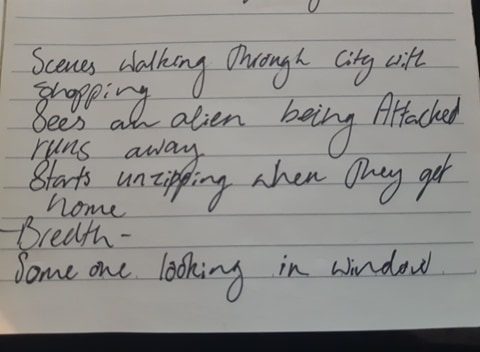 Scenes walking through City with
shopping
Sees an alien being Attacked
runs away
Starts unzipping when They get
home
-Breath-
Someone looking in window